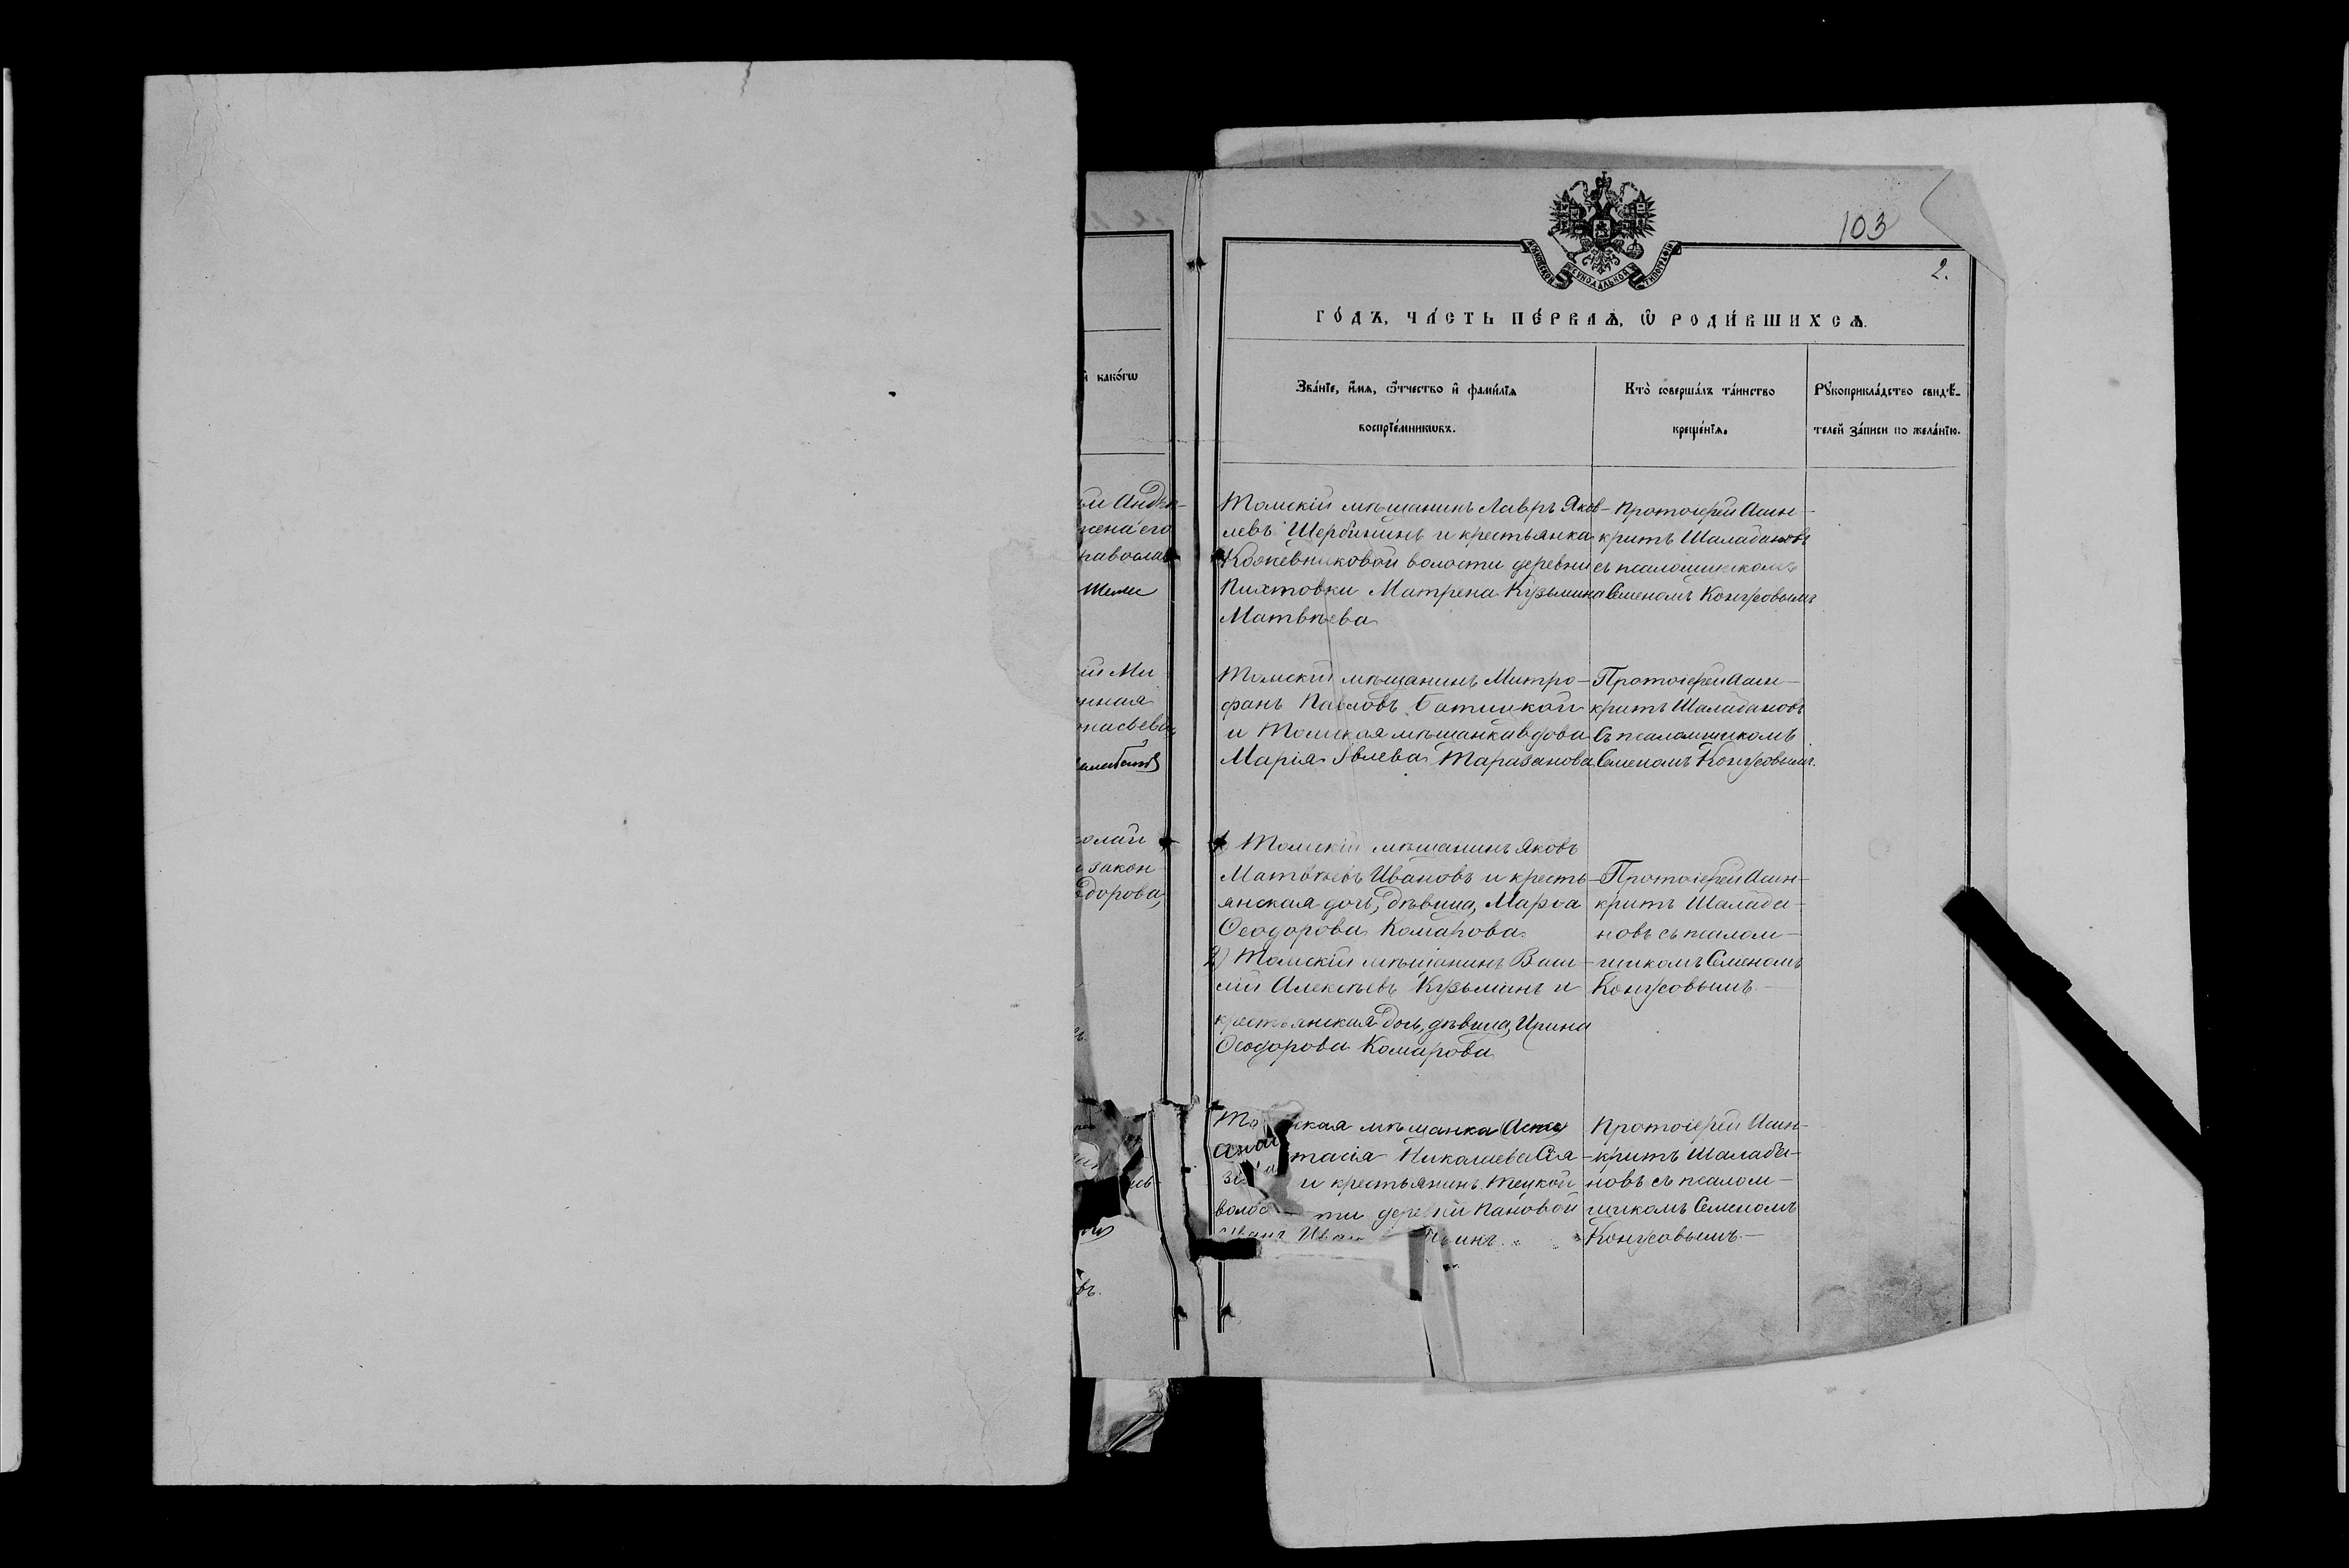 103
2.
МОСКОВСКОЙ СѴНОДАЛЬНОЙ ТИПОГРАФІИ
ГО́ДЪ, ЧА́СТЬ ПЕ́РВАѦ, Ѽ РОДИ́ВШИХСѦ.
й како́гѡ
Зва́нїе, и҆́мѧ, ѻ҆́тчество и҆ фами́лїѧ
воспрїе́мникѡвъ.
Кто̀ соверша́лъ та́инство
креще́нїѧ.
Рꙋкоприкла́дство свидѣ́-
телей за́писи по жела́нїю.
жена его
православ
закон
дорова,
Томскій мѣщанинъ Лавръ Яков-
левъ Щербининъ и крестьянка
Кожевниковой волости деревни
Пихтовки Матрена Кузьмина
Матвѣева
Протоіерей Асин-
критъ Шалабановъ
съ псаломщикомъ
Семеномъ Конусовымъ
Томскій мѣщанинъ Митро-
фанъ Павловъ
и Томская мѣщанка вдова
Марія Таразанова
Протоіерей Асин-
критъ Шалабановъ
съ псаломщикомъ
Семеномъ Конусовымъ.
1) Томскій мѣщанинъ Яковъ
Матвѣевъ Ивановъ и кресть-
янская дочь, дѣвица, Марѳа
Ѳеодорова Комарова
2) Томскій мѣщанинъ Васи-
лій Алексѣевъ Кузьминъ и
крестьянская дочь, дѣвица, Ирина
Ѳеодорова Комарова
Протоіерей Асин-
критъ Шалаба-
новъ съ псалом-
щикомъ Семеномъ
Конусовымъ.-
мѣщанка
Анас тасія
и крестьянинъ
волос-ти деревни Пановой
Протоіерей Асин-
критъ Шалаба-
новъ съ псалом-
щикомъ Семеномъ
Конусовымъ.-